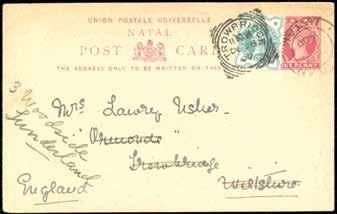 UNION POSTALE UNIVERSELLE
NATAL
POST CARD
THE ADDRESS ONLY TO BE WRITTEN ON THIS
TROWBRIDGE
ONE PENNY
Mrs Lawry Usher
Ormonde
Trowbridge
Wiltshire
3 Woodside
Sunderland
England